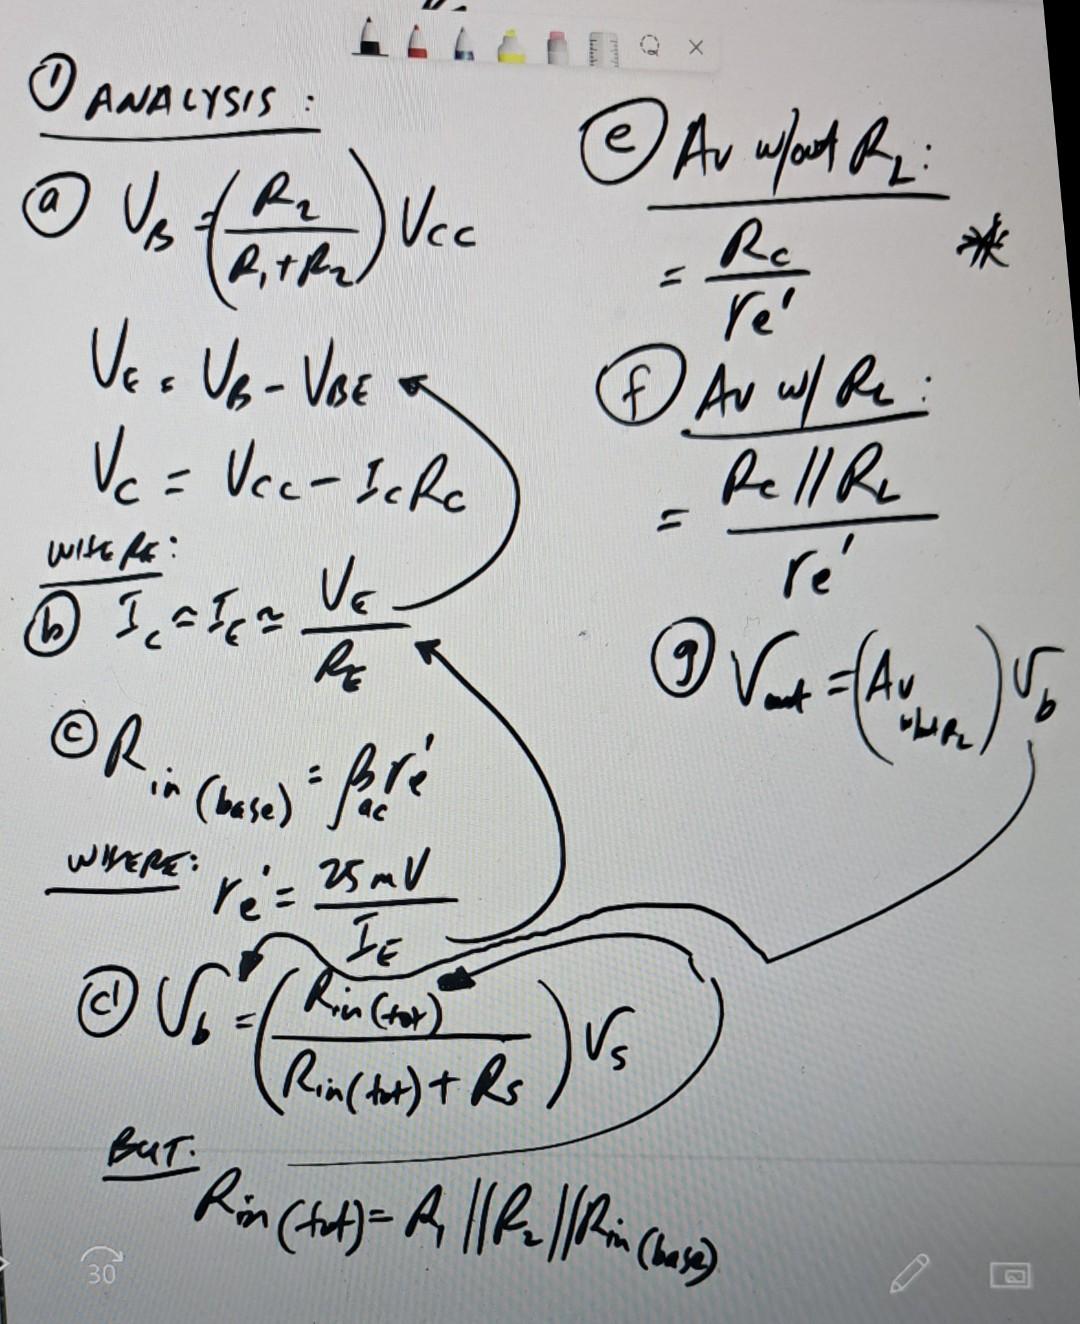 ① ANALYSIS:
ⓐ V_B = (R_2 / (R_1 + R_2)) V_CC
V_E = V_B - V_BE
V_C = V_CC - I_C R_C
WHERE:
ⓑ I_C ≈ I_E ≈ V_E / R_E
ⓒ R_in (base) = β_ac r_e'
WHERE: r_e' = 25 mV / I_E
ⓓ V_b = (R_in (tot) / (R_in (tot) + R_S)) V_s
BUT:
R_in (tot) = R_1 // R_2 // R_in (base)
ⓔ A_v w/out R_L:
= R_C / r_e' *
ⓕ A_v w/ R_L:
= R_C // R_L / r_e'
ⓖ V_out = (A_v w/out R_L) V_b
30